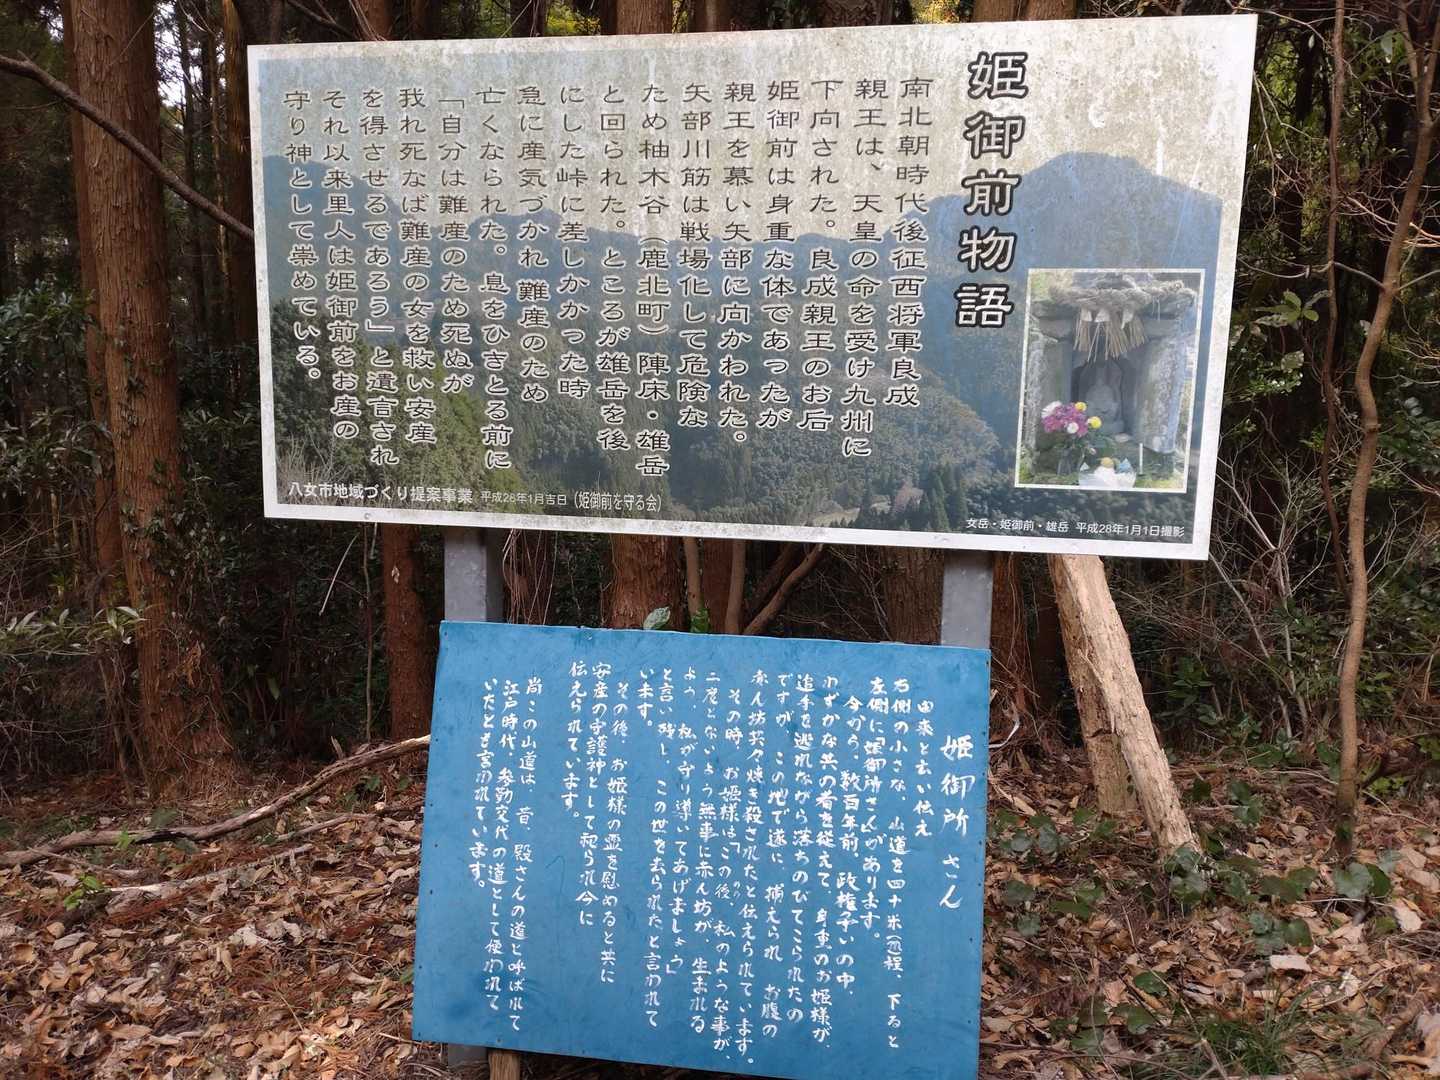 姫御前物語
南北朝時代後征西将軍良成
親王は、天皇の命を受け九州に
下向された。良成親王のお后
姫御前は身重な体であったが
親王を慕い矢部に向かわれた。
矢部川筋は戦場化して危険な
ため柚木谷（鹿北町）陣床・雄岳
と回られた。ところが雄岳を後
にした峠に差しかかった時
急に産気づかれ難産のため
亡くなられた。息をひきとる前に
「自分は難産のため死ぬが
我れ死なば難産の女を救い安産
を得させるであろう」と遺言され
それ以来里人は姫御前をお産の
守り神として崇めている。
八女市地域づくり提案事業 平成28年1月吉日（姫御前を守る会）
女岳・姫御前・雄岳 平成28年1月1日撮影
姫御所さん
由来と云い伝え
右側の小さな、山道を四十米程、下ると
左側に「姫御所さん」があります。
今から、数百年前、政権争いの中、
わずかな共の者を従えて、身重のお姫様が、
追手を逃れながら落ちのびてこられたの
ですが、この地で遂に、捕えられ、お腹の
赤ん坊共々焼き殺されたと伝えられています。
その時、お姫様は「この後、私のような事が、
二度とないよう無事に赤ん坊が、生まれる
よう、私が守り導いてあげましょう」
と言い残し、この世を去られたと言われて
います。
その後、お姫様の霊を慰めると共に
安産の守護神として祀られ今に
伝えられています。
尚この山道は、昔、殿さんの道と呼ばれて
江戸時代、参勤交代の道として使われて
いたとも言われています。